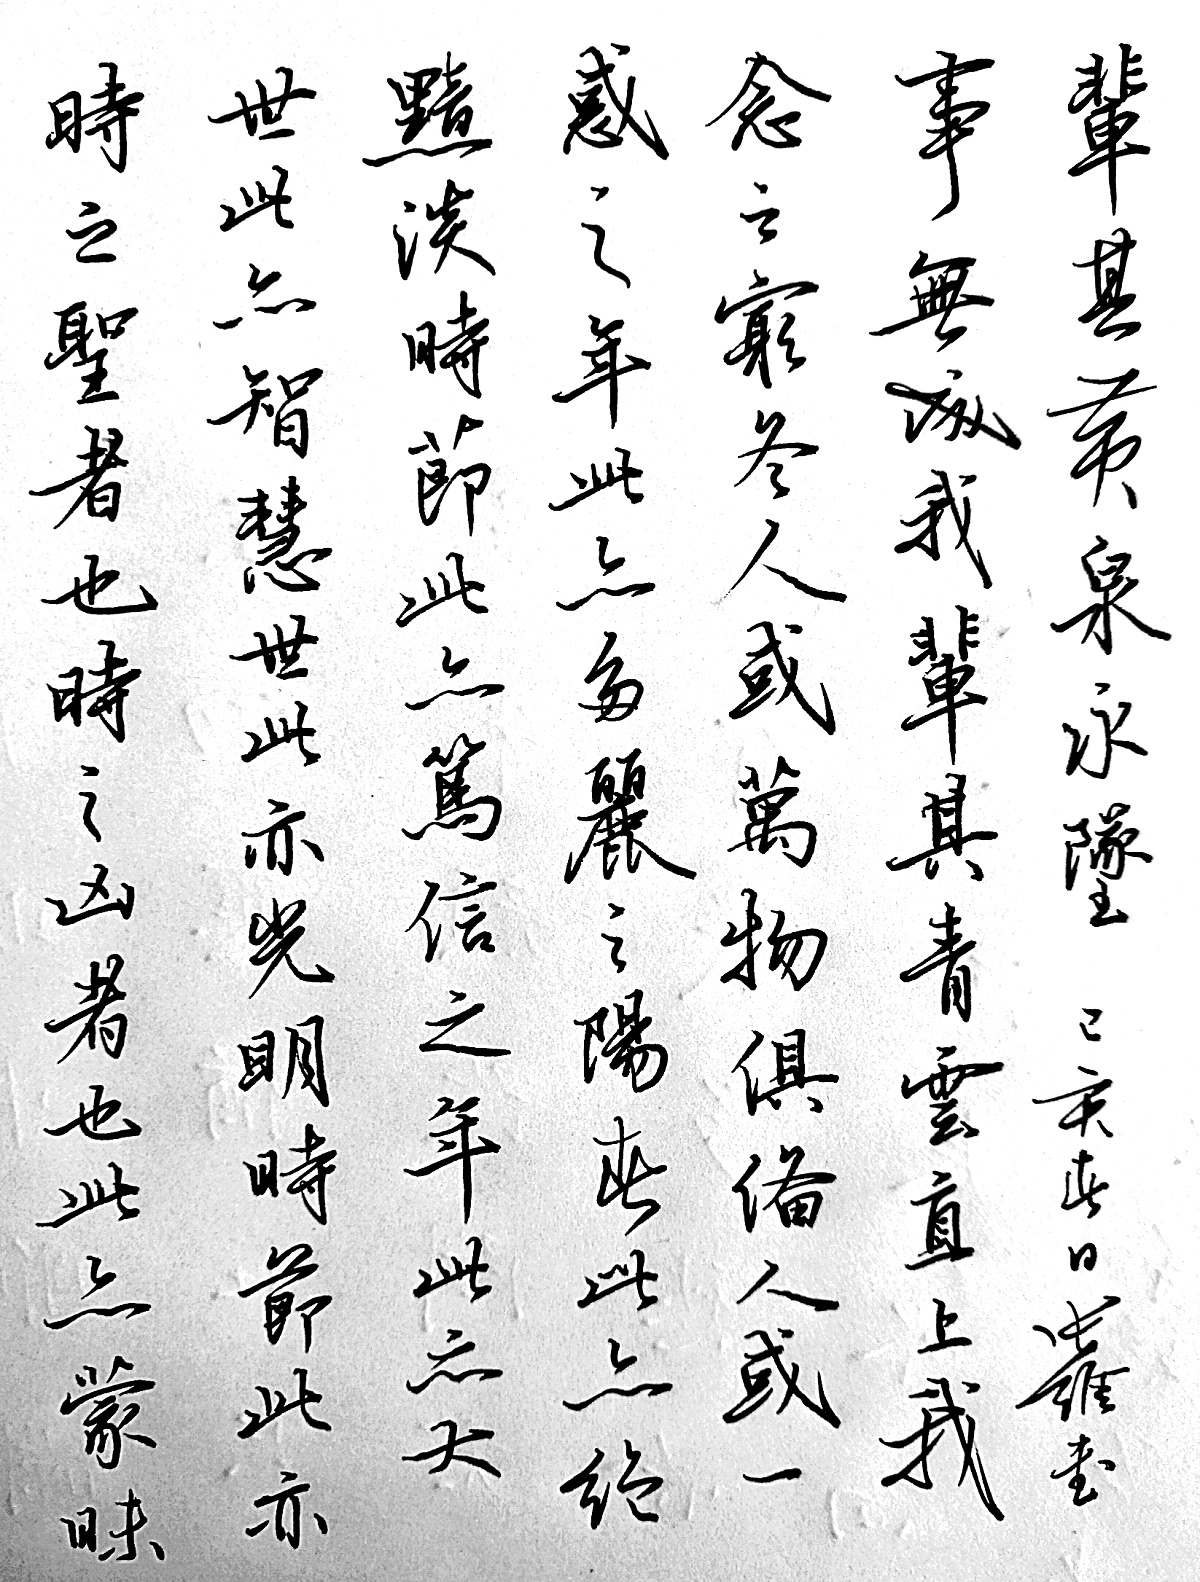 時之聖者也時之凶者也此亦蒙昧
世此亦智慧世此亦光明時節此亦
黯淡時節此亦篤信之年此亦大
惑之年此亦多麗之陽春此亦絕
念之窮冬人或萬物俱備人或一
事無成我輩其青雲直上我
輩其黃泉永墜 己亥春日書